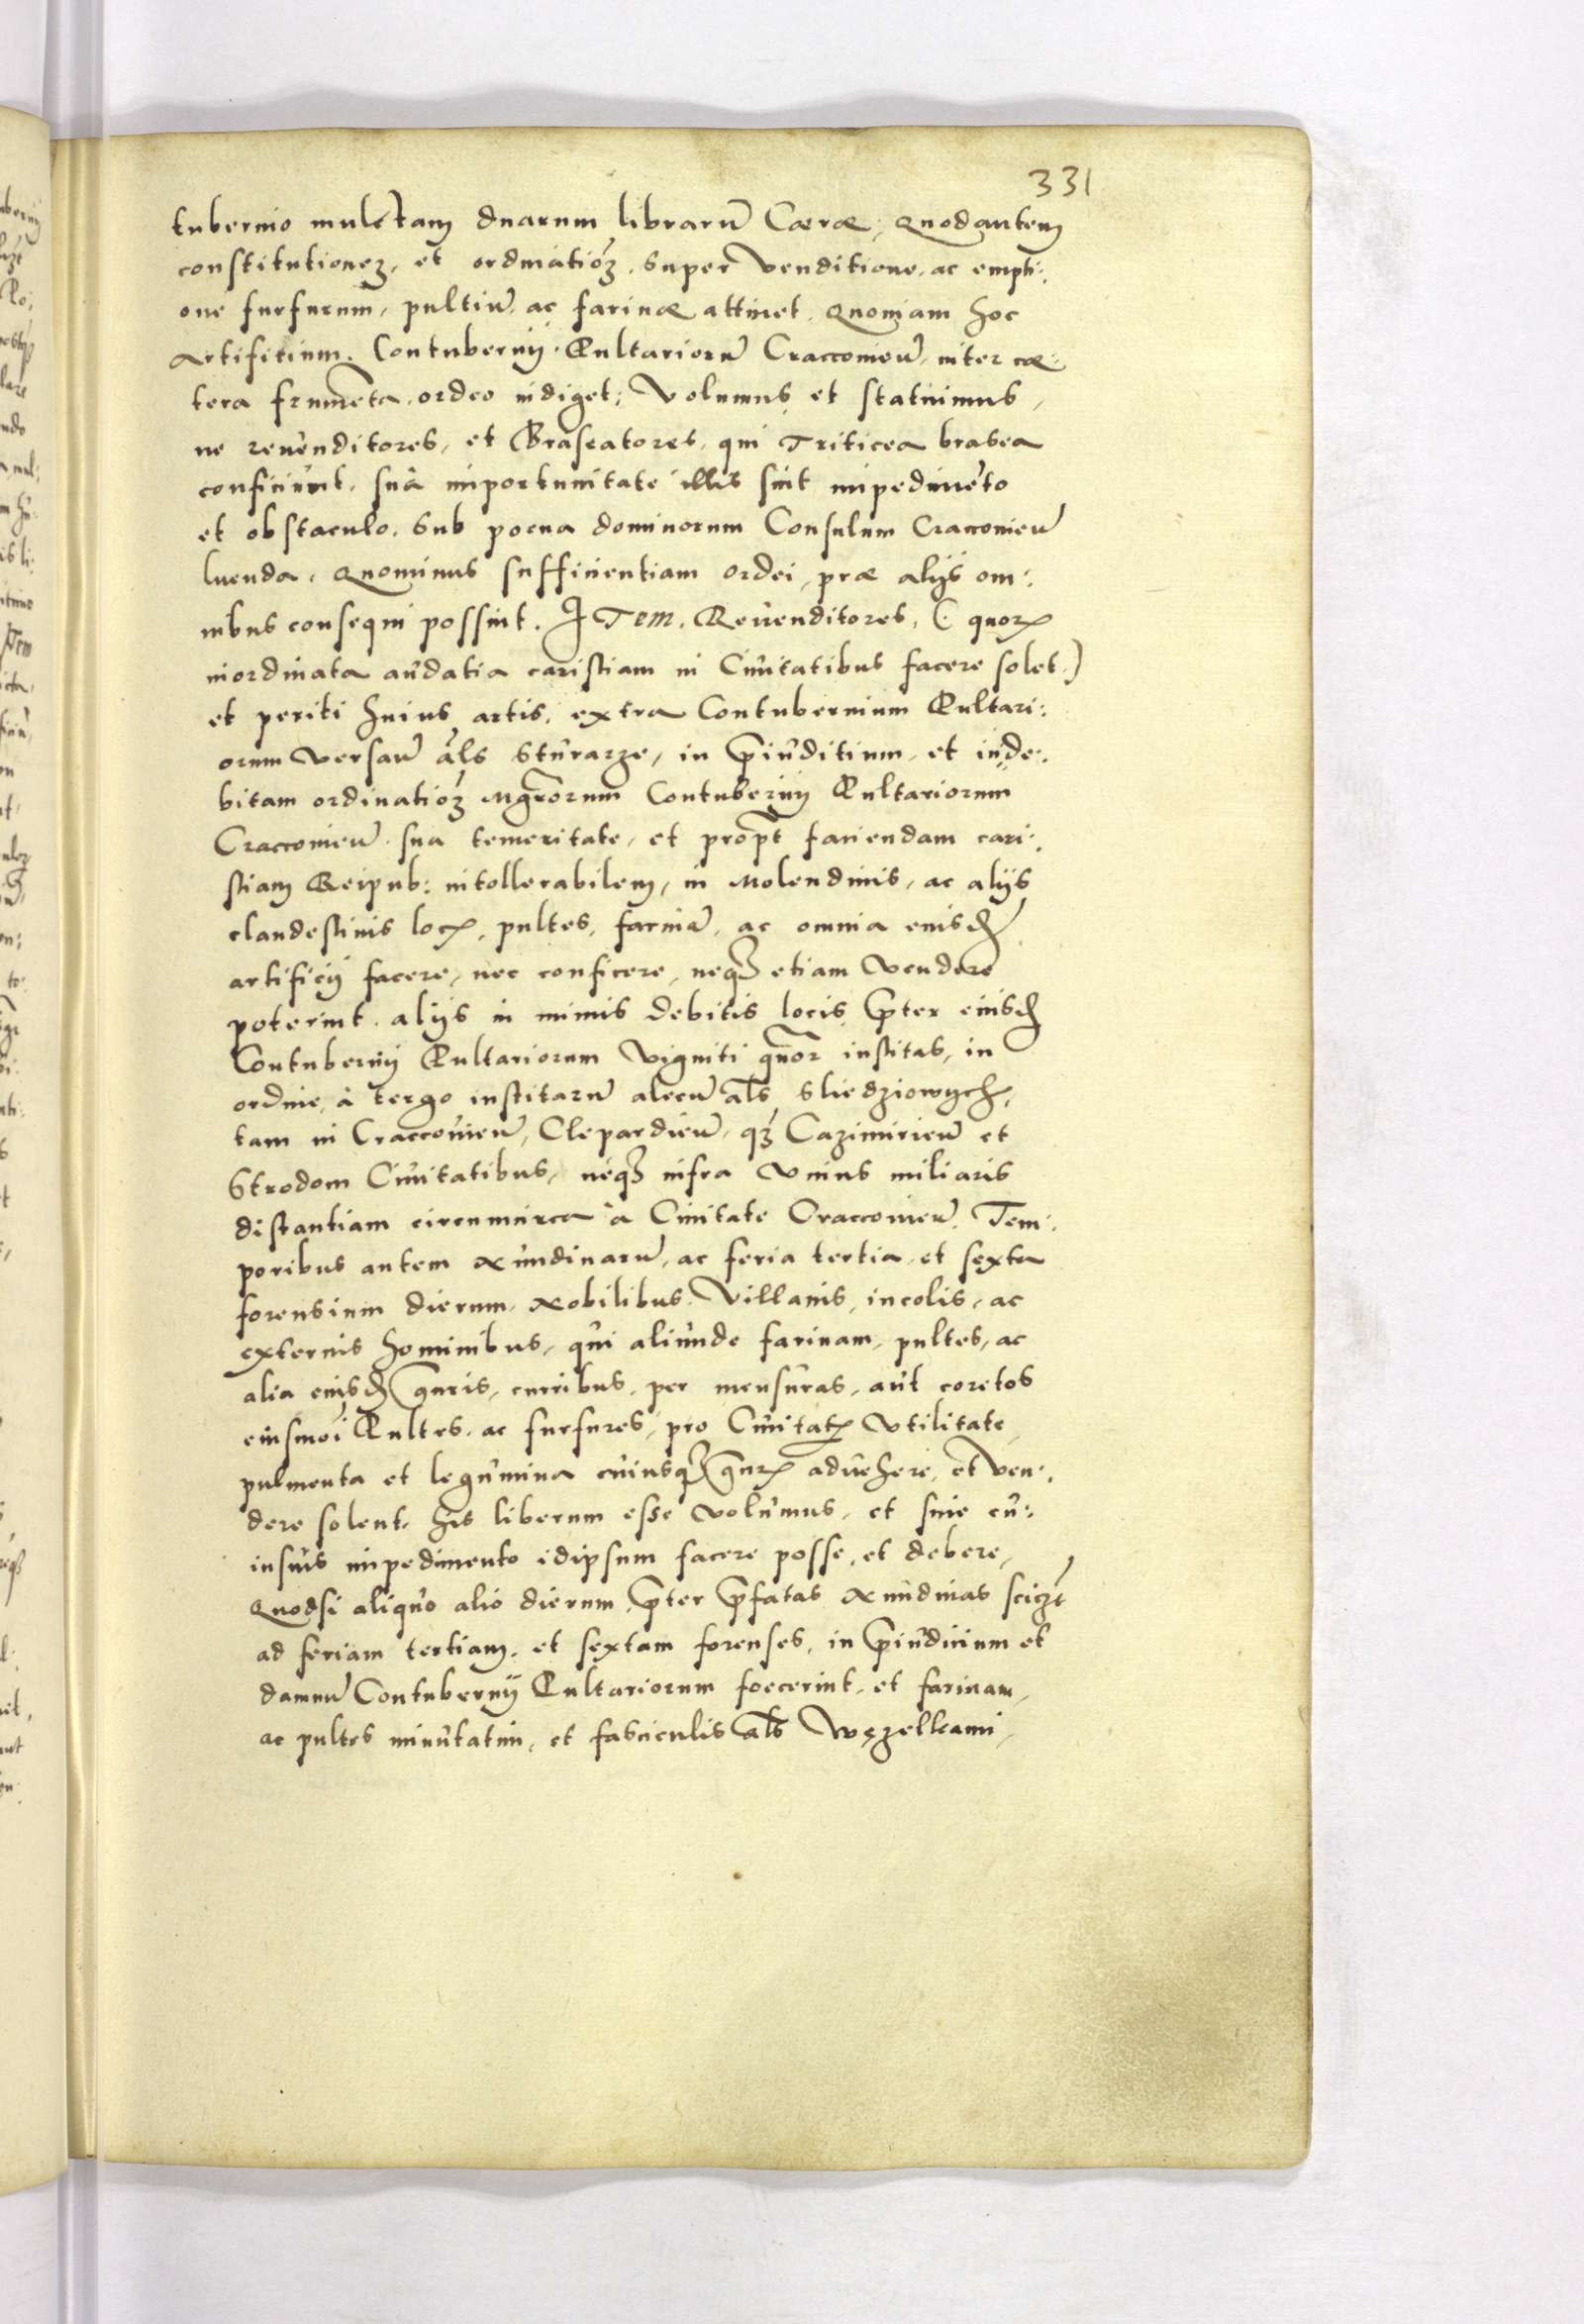 331
tubernio mulctam duarum librarū Cæræ, Quod autem
constitutionez, et ordinatióȝ, super venditione, ac empti:
one furfurum, pultiū, ac farinæ attinet, Quoniam hoc
Artifitium Contubernij Pultariorū Cracconieñ, inter cæ:
tera frumēta, ordeo indiget; Volumus et statuimus,
ne revenditores, et Braseatores, qui Triticea brasea
conficiunt, suâ importunitate illis sint impedimēto
et obstaculo, Sub poena dominorum Consulum Cracconieñ
luenda, Quominus sufficientiam ordei, præ alijs om:
nibus consequi possint. ITem, Revenditores, (quoꝝ
inordinata audatia caristiam in Civitatibus facere solet.)
et periti huius artis, extra Contubernium Pultari:
orum versañ als Sturarze, in p̄iuditium, et inde:
bitam ordinatióȝ Mgr̄orum Contubernij Pultariorum
Cracconieñ sua temeritate, et propt̄ faciendam cari:
stiam Reipub: intollerabilem, in Molendinis, ac alijs
clandestinis locꝭ, pultes, farinā, ac omnia eiusꝺ
artificij facere, nec conficere, neqȝ etiam vendere
poterint, alijs in minus debitis locis, p̄ter eiusꝺ
Contubernij Pultariorum viginti quor̄ institas, in
ordine, à tergo institarū alecū als Sliedziowych,
tam in Cracconieñ, Clepardieñ, qȝ Cazimirieñ et
Strodom Civitatibus, neqȝ infra vnius miliaris
distantiam circumcirca à Civitate Cracconieñ. Tem:
poribus autem Nundinarū, ac feria tertia et sexta
forensium dierum, Nobilibus, Villanis, incolis, ac
externis hominibus, qui aliunde farinam, pultes, ac
alia eiusꝺ gn̄ris, curribus, per mensuras, aut coretos
eiusmoi Pultes, ac furfures, pro Civitatꝭ vtilitate
pulmenta et legumina cuiusqȝ gn̄rꝭ advehere, et ven:
dere solent, his liberum esse volumus, et sine cu:
iusvis impedimento idipsum facere posse, et debere,
Quodsi aliquo alio dierum p̄ter p̄fatas Nundinas scilꝫt
ad feriam tertiam, et sextam forenses, in p̄iudicium et
damnū Contubernij Pultariorum foecerint, et farinam,
ac pultes minutatim, et fasciculis als Węzelkami,